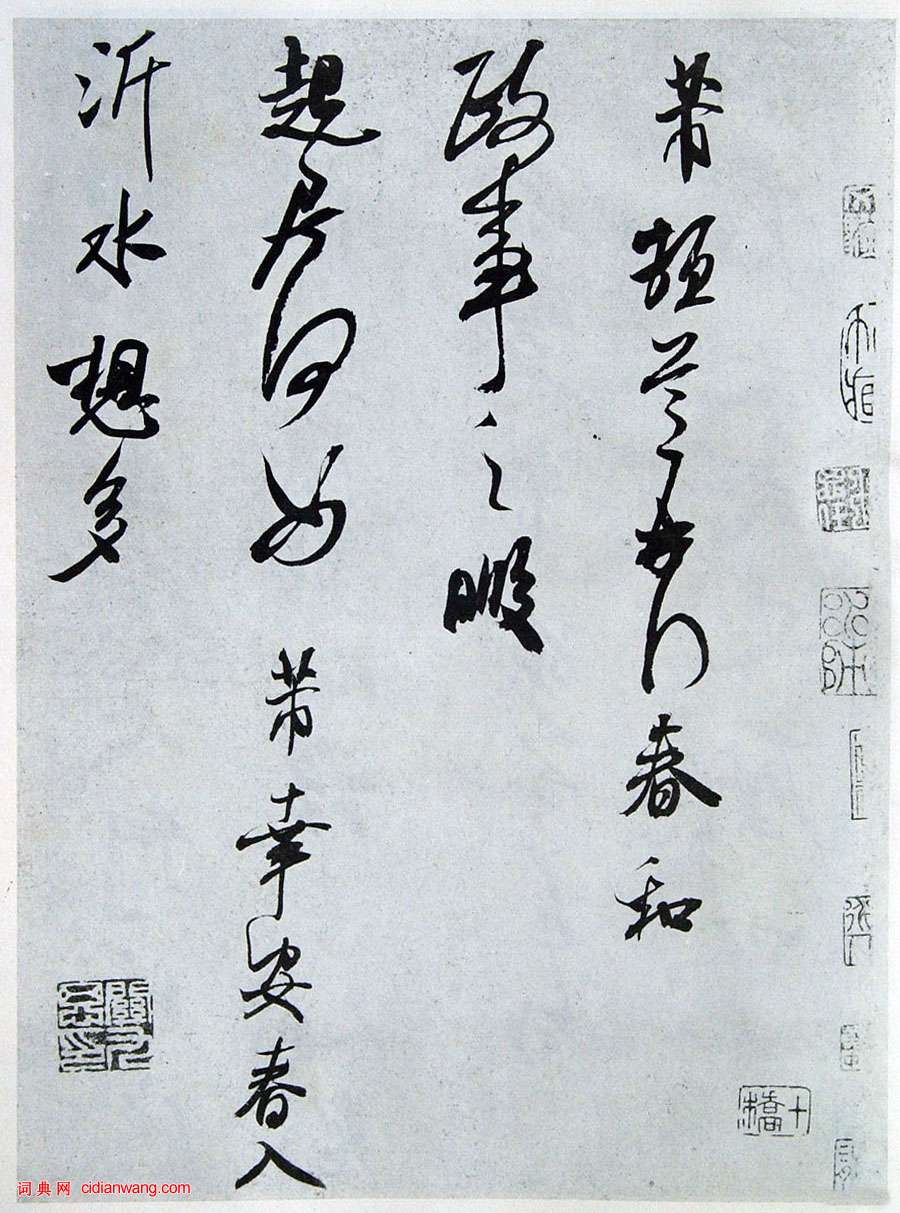 芾頓首再行春和
政事之暇
起居何如 芾幸安春入
沂水想多
十橋
词典网 cidianwang.com